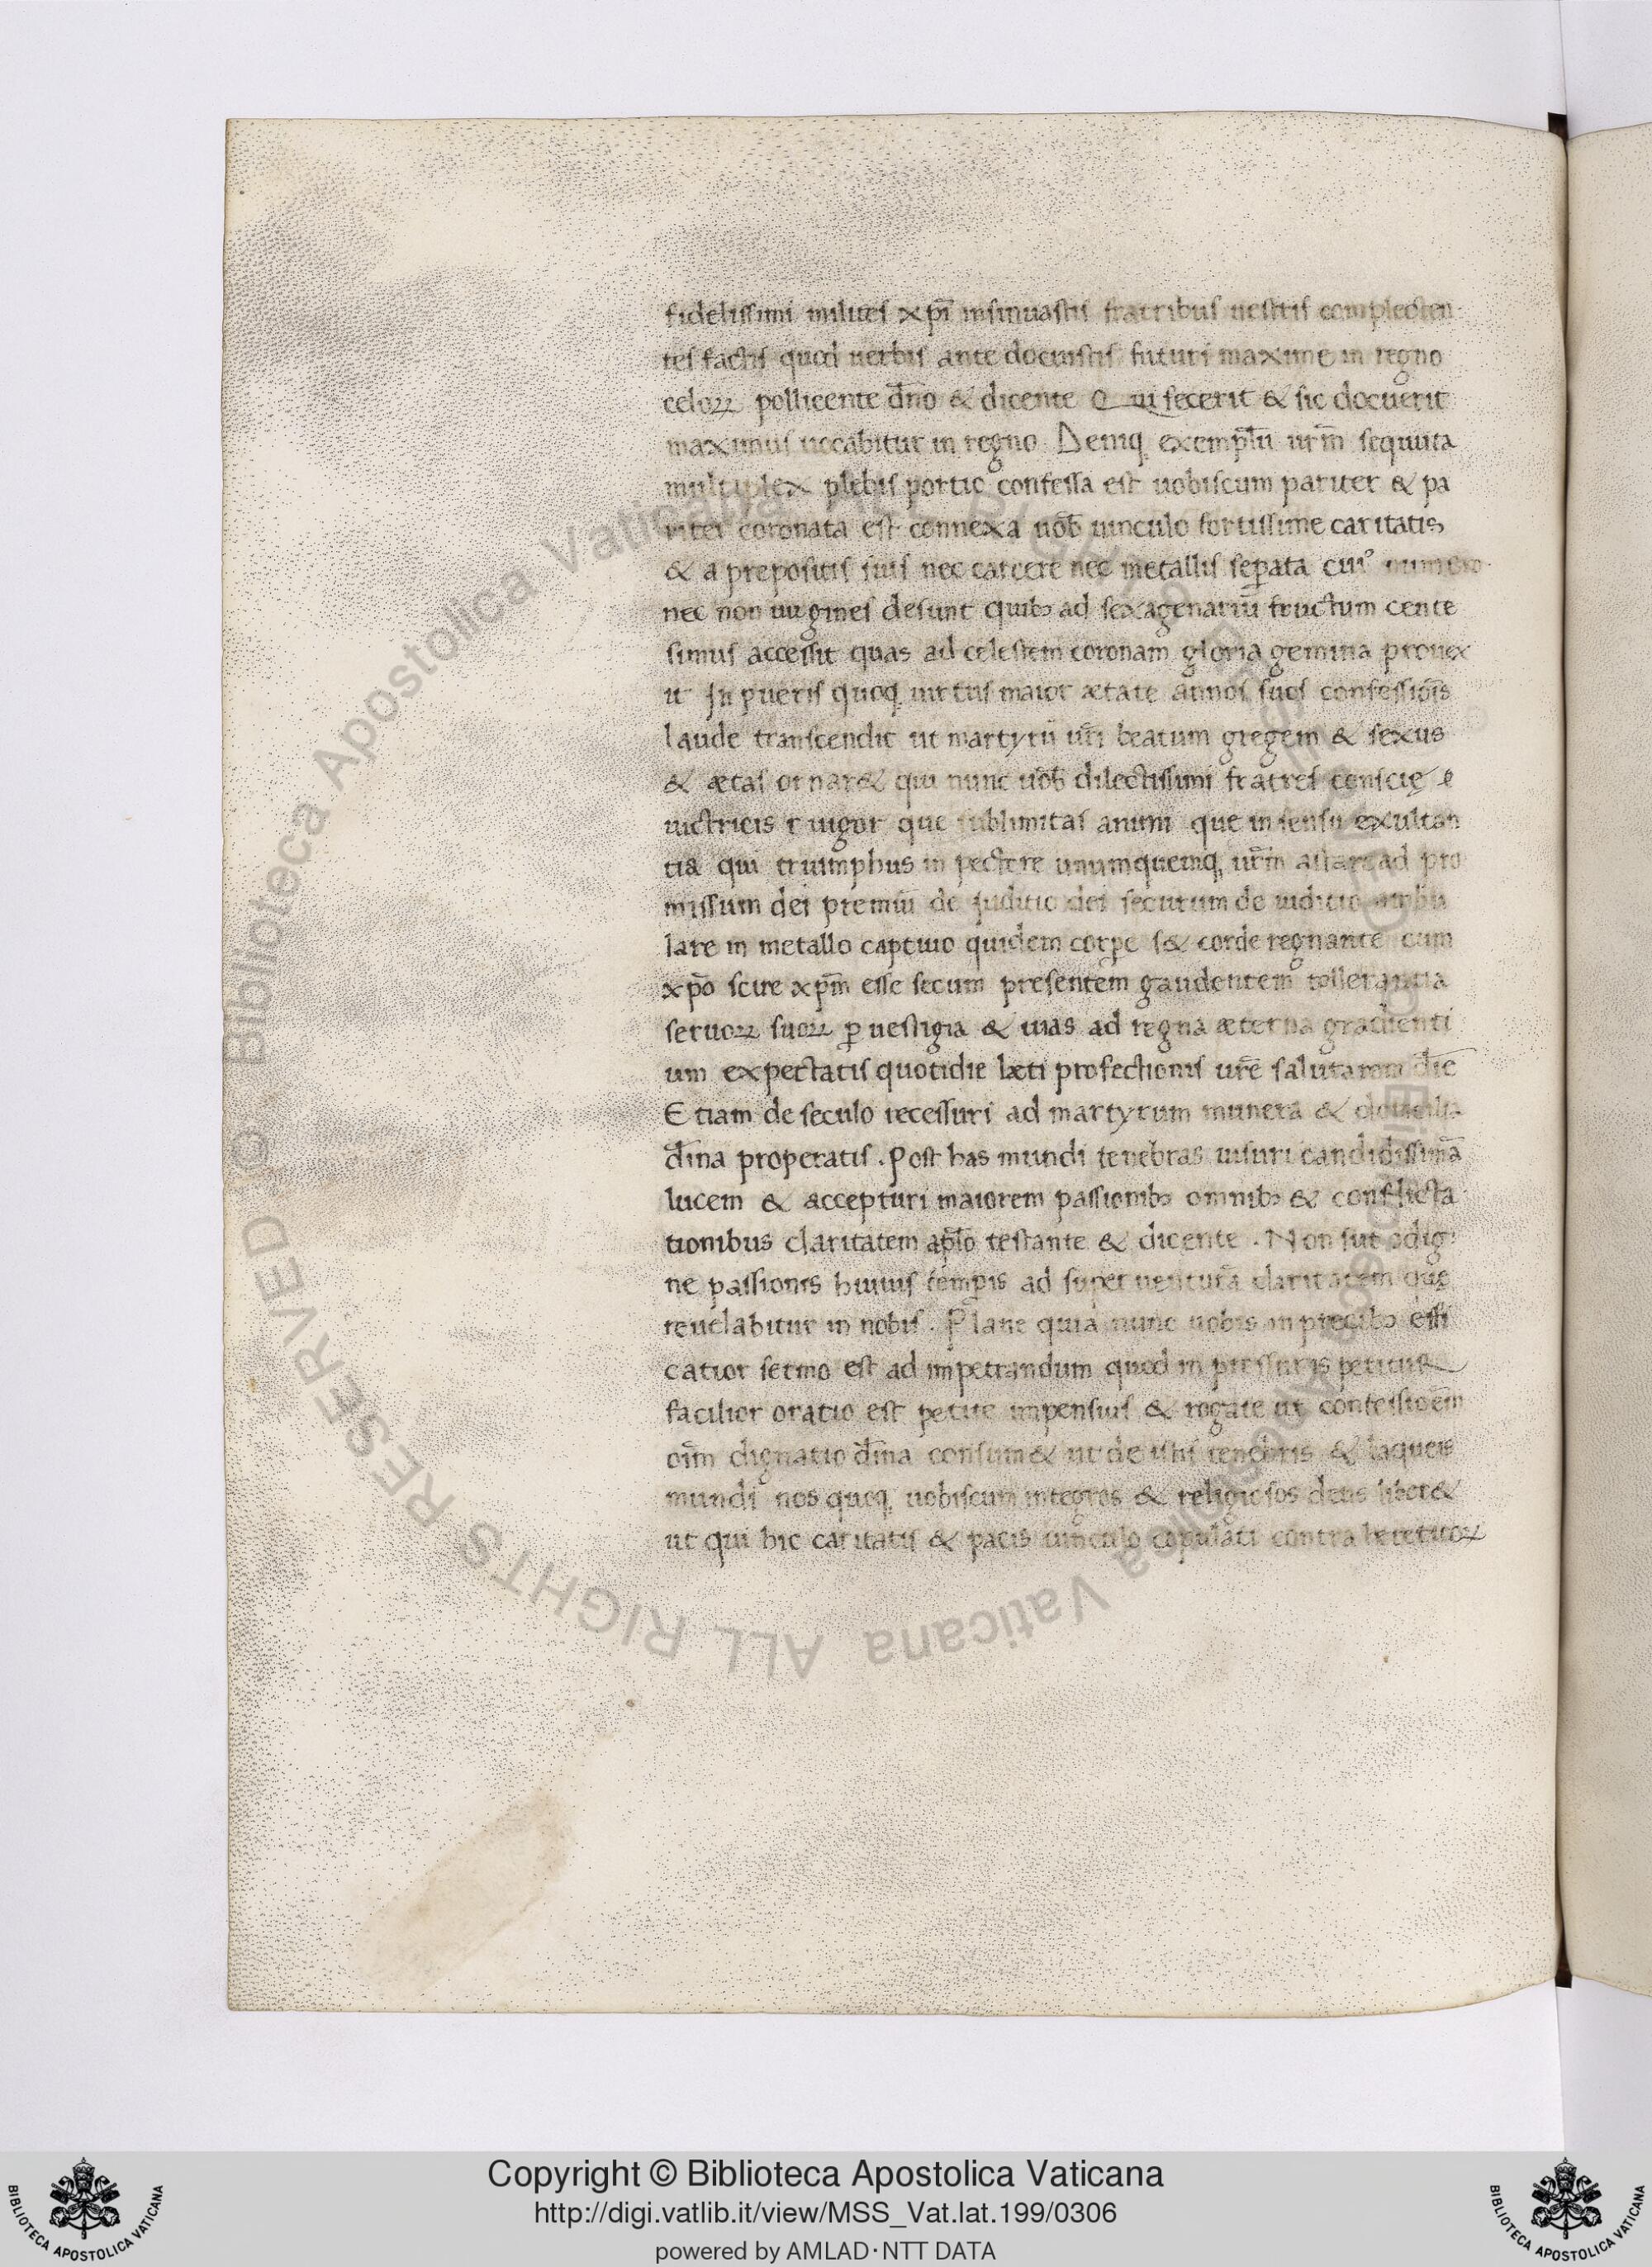 fidelissimi milites xp̄i insinuastis fratribus uestris complecten
tes factis quod uerbis ante docuistis futuri maxime in regno
celoꝝ pollicente dn̄o & dicente Qui fecerit & sic docuerit
maximus uocabitur in regno Deniq exemplū urm̄ sequuta
multiplex plebis portio confessa est uobiscum pariter & pa
riter coronata est connexa uob̄ uinculo fortissime caritatis
& a prepositis suis nec carcere nec metallis sep̄ata cui᾽ numero
nec non uirgines desunt quibꝫ ad sexagenariū fructum cente
simus accessit quas ad celestem coronam gloria gemina prouex
it In pueris quoq uirtus maior ætate annos suos confessiōis
laude transcendit ut martyrii ur̄i beatum gregem & sexus
& ætas ornar& qui nunc uob̄ dilectissimi fratres consciẹ
uictricis ē uigor que sublimitas animi que in sensu exultan
tia qui triumphus in pectore unumquemq ur̄m astare ad pro
missum dei premiū de iuditio dei securum de iuditio ambu
lare in metallo captiuo quidem corpe s& corde regnante cum
xp̄o scire xp̄m esse secum presentem gaudentem tollerantia
seruoꝝ suoꝝ ꝑ uestigia & uias ad regna æterna gradienti
um expectatis quotidie læti profectionis ur̄e salutarem diē
Etiam de seculo recessuri ad martyrum munera & domicilia
diīna properatis. Post has mundi tenebras uisuri candidissimā
lucem & accepturi maiorem passionibꝫ omnibꝫ & conflicta
tionibus claritatem apl̄o testante & dicente. Non sūt cōdig
ne passiones huius tempis ad superuenturā claritatem que
reuelabitur in nobis. Plane quia nunc uobis in precibꝫ effi
catior sermo est ad impetrandum quod in pressuris petitur
facilior oratio est petite impensius & rogate ut confessioēm
oīm dignatio diīna consum& ut de istis tenebris & laqueis
mundi nos quoq uobiscum integros & religiosos deus liber&
ut qui hic caritatis & pacis uinculo copulati contra hereticoꝝ
Copyright © Biblioteca Apostolica Vaticana
http://digi.vatlib.it/view/MSS_Vat.lat.199/0306
powered by AMLAD·NTT DATA
BIBLIOTECA APOSTOLICA VATICANA
BIBLIOTECA APOSTOLICA VATICANA
© Biblioteca Apostolica Vaticana ALL RIGHTS RESERVED